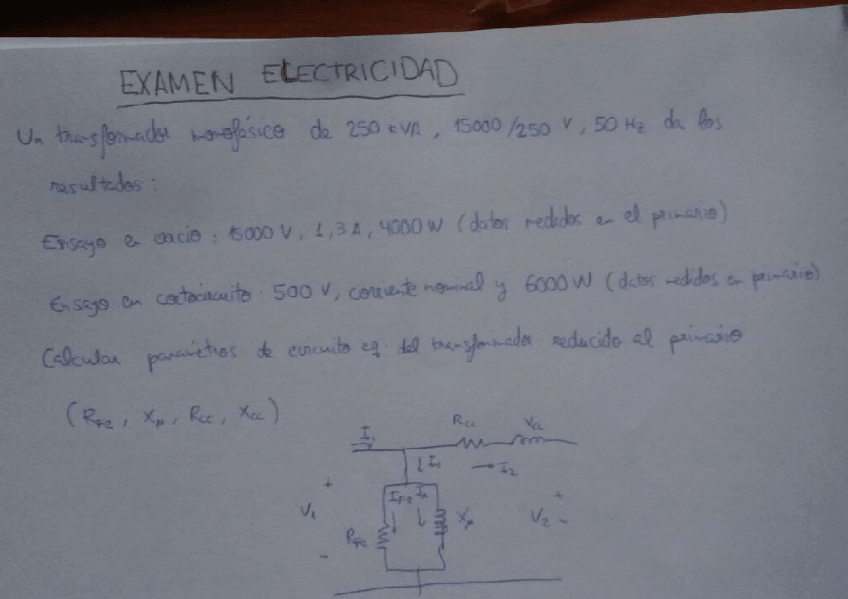 EXAMEN ELECTRICIDAD
Un transformador monofásico de 250 kVA, 15000/250 V, 50 Hz da los
resultados:
Ensayo en vacio: 15000 V, 1,3 A, 4000 W (datos medidos en el primario)
Ensayo en cortocircuito: 500 V, corriente nominal y 6000 W (datos medidos en primario)
Calcular parámetros de circuito eq. del transformador reducido al primario
(RFe, Xμ, Rcc, Xcc)
I1 Rcc Xcc
Io I2
+ IFe Iμ +
V1 RFe Xμ V2
- -